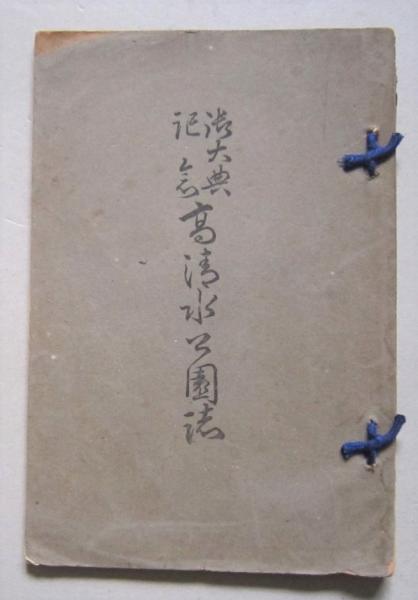 御大典
記念
高清水公園誌